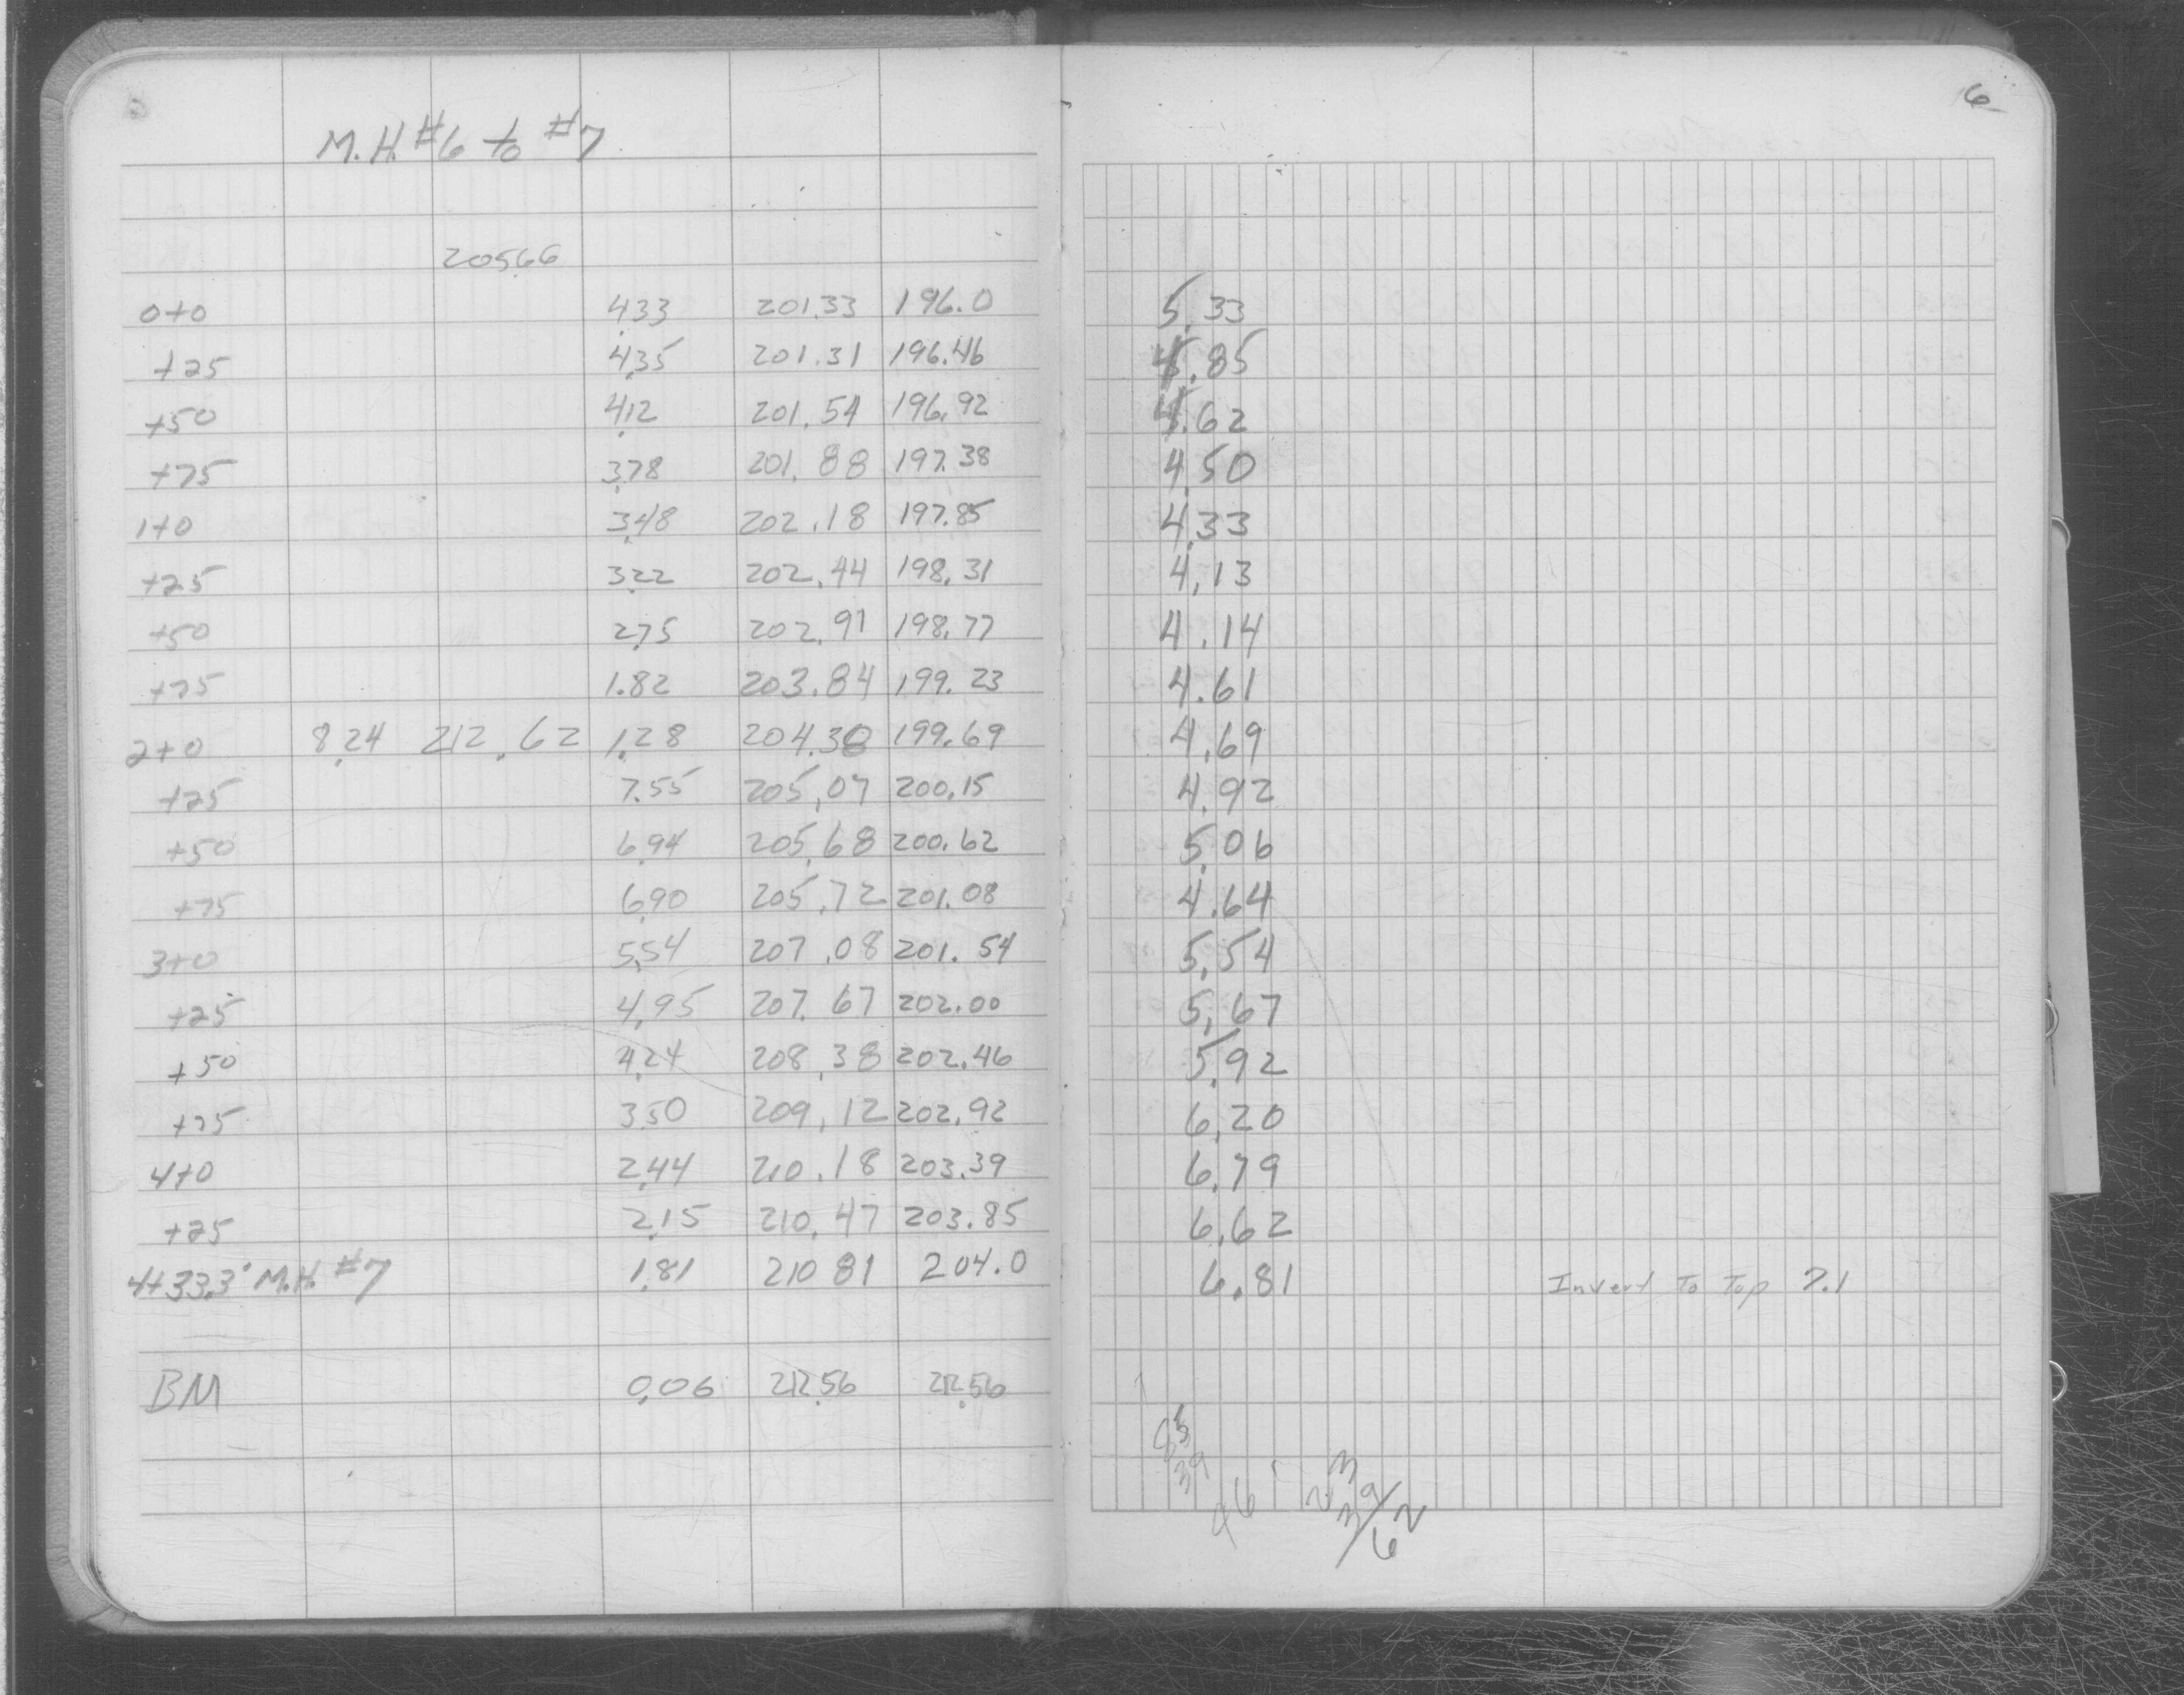 6
M.H. #6 to #7
205.66
0+0 4.33 201.33 196.0 5.33
+25 4.35 201.31 196.46 4.85
+50 4.12 201.54 196.92 4.62
+75 3.78 201.88 197.38 4.50
1+0 3.48 202.18 197.85 4.33
+25 3.22 202.44 198.31 4.13
+50 2.75 202.91 198.77 4.14
+75 1.82 203.84 199.23 4.61
2+0 8.24 212.62 1.28 204.38 199.69 4.69
+25 7.55 205.07 200.15 4.92
+50 6.94 205.68 200.62 5.06
+75 6.90 205.72 201.08 4.64
3+0 5.54 207.08 201.54 5.54
+25 4.95 207.67 202.00 5.67
+50 4.24 208.38 202.46 5.92
+75 3.50 209.12 202.92 6.20
4+0 2.44 210.18 203.39 6.79
+25 2.15 210.47 203.85 6.62
4+33.3' M.H. #7 1.81 210 81 204.0 6.81 Invert To Top 7.1
BM 0.06 212.56 212.56
85
39
46